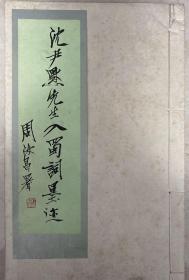 沈尹默先生入蜀词墨迹
周汝昌署